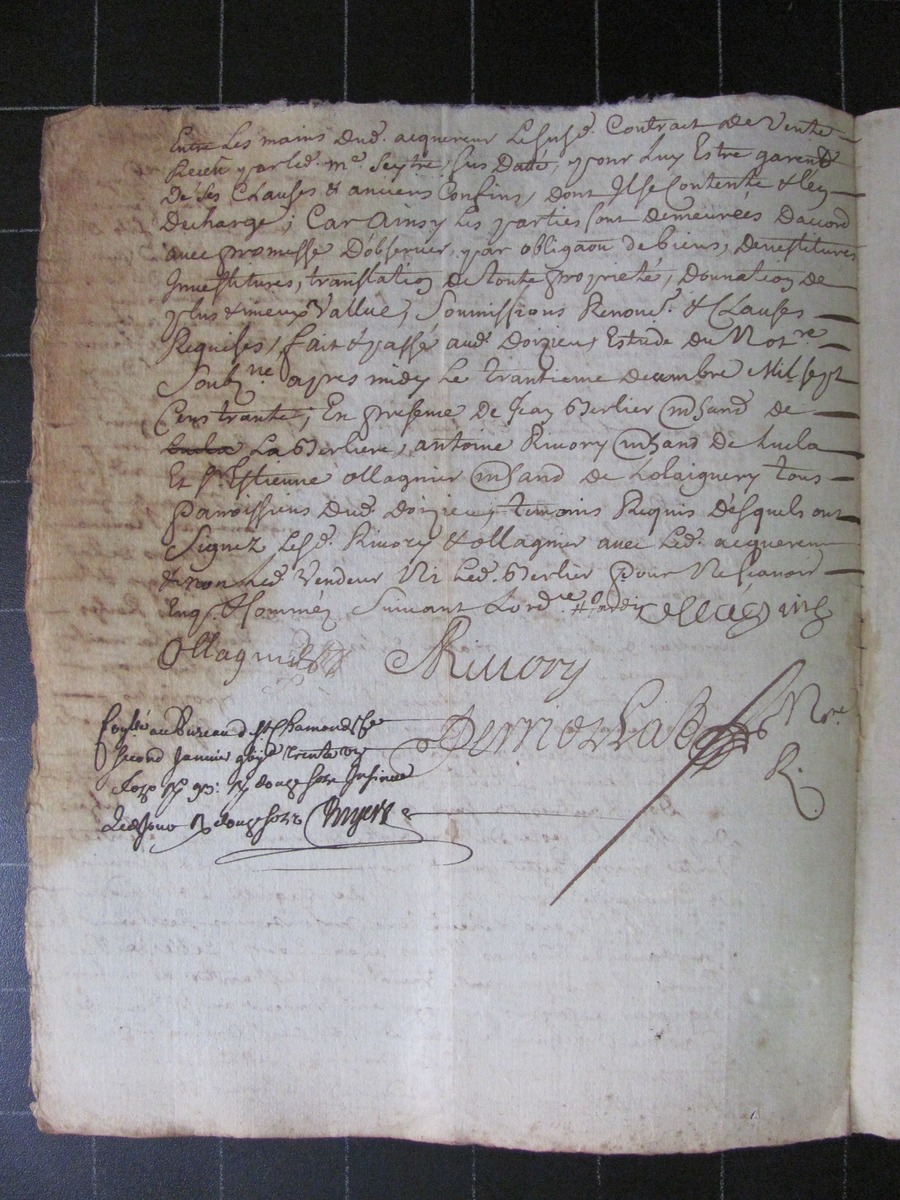 Entre Les mains dud. acquereur Lesusd. Contrait de Vente
Receu par led. me. Seytre, sus Datté, pour Luy Estre garend
De ses Clauses & anciens Confins, dont Il se Contente & l'en
Descharge; Car Ainsy Les parties sont demeurées Daccord
avec promesse Dobserver, par obligaon de biens, devestitures
Investitures, translation de toute proprieté, Donnation de
plus & mieux Vallue, Soummissions Renonc. & Clauses
Requises, fait & passé aud. Doizieu, Estude du Notre
Soubne. apres midy Le trantieme decembre Mil sept
Cens trante; En presence de Jean Berlier mhand de
Lucla La Berliere, antoine Rivory mhand de Lucla
Et sr. Estienne ollagnier mhand de Lolaignery tous
Parroissiens dud. doizieu, temoins Requis desquels ont
Signez Lesd. Rivory & ollagnier avec Led. acquereur
& non Led. Vendeur Ni Led. Berlier pour Ne scavoir
Enqs. & Sommés Suivant Lordre.
Ollagnier Rivory
Notre
R.
au Bureau de St Chamond Le
second Janvier trente un
douze sols
douze sols